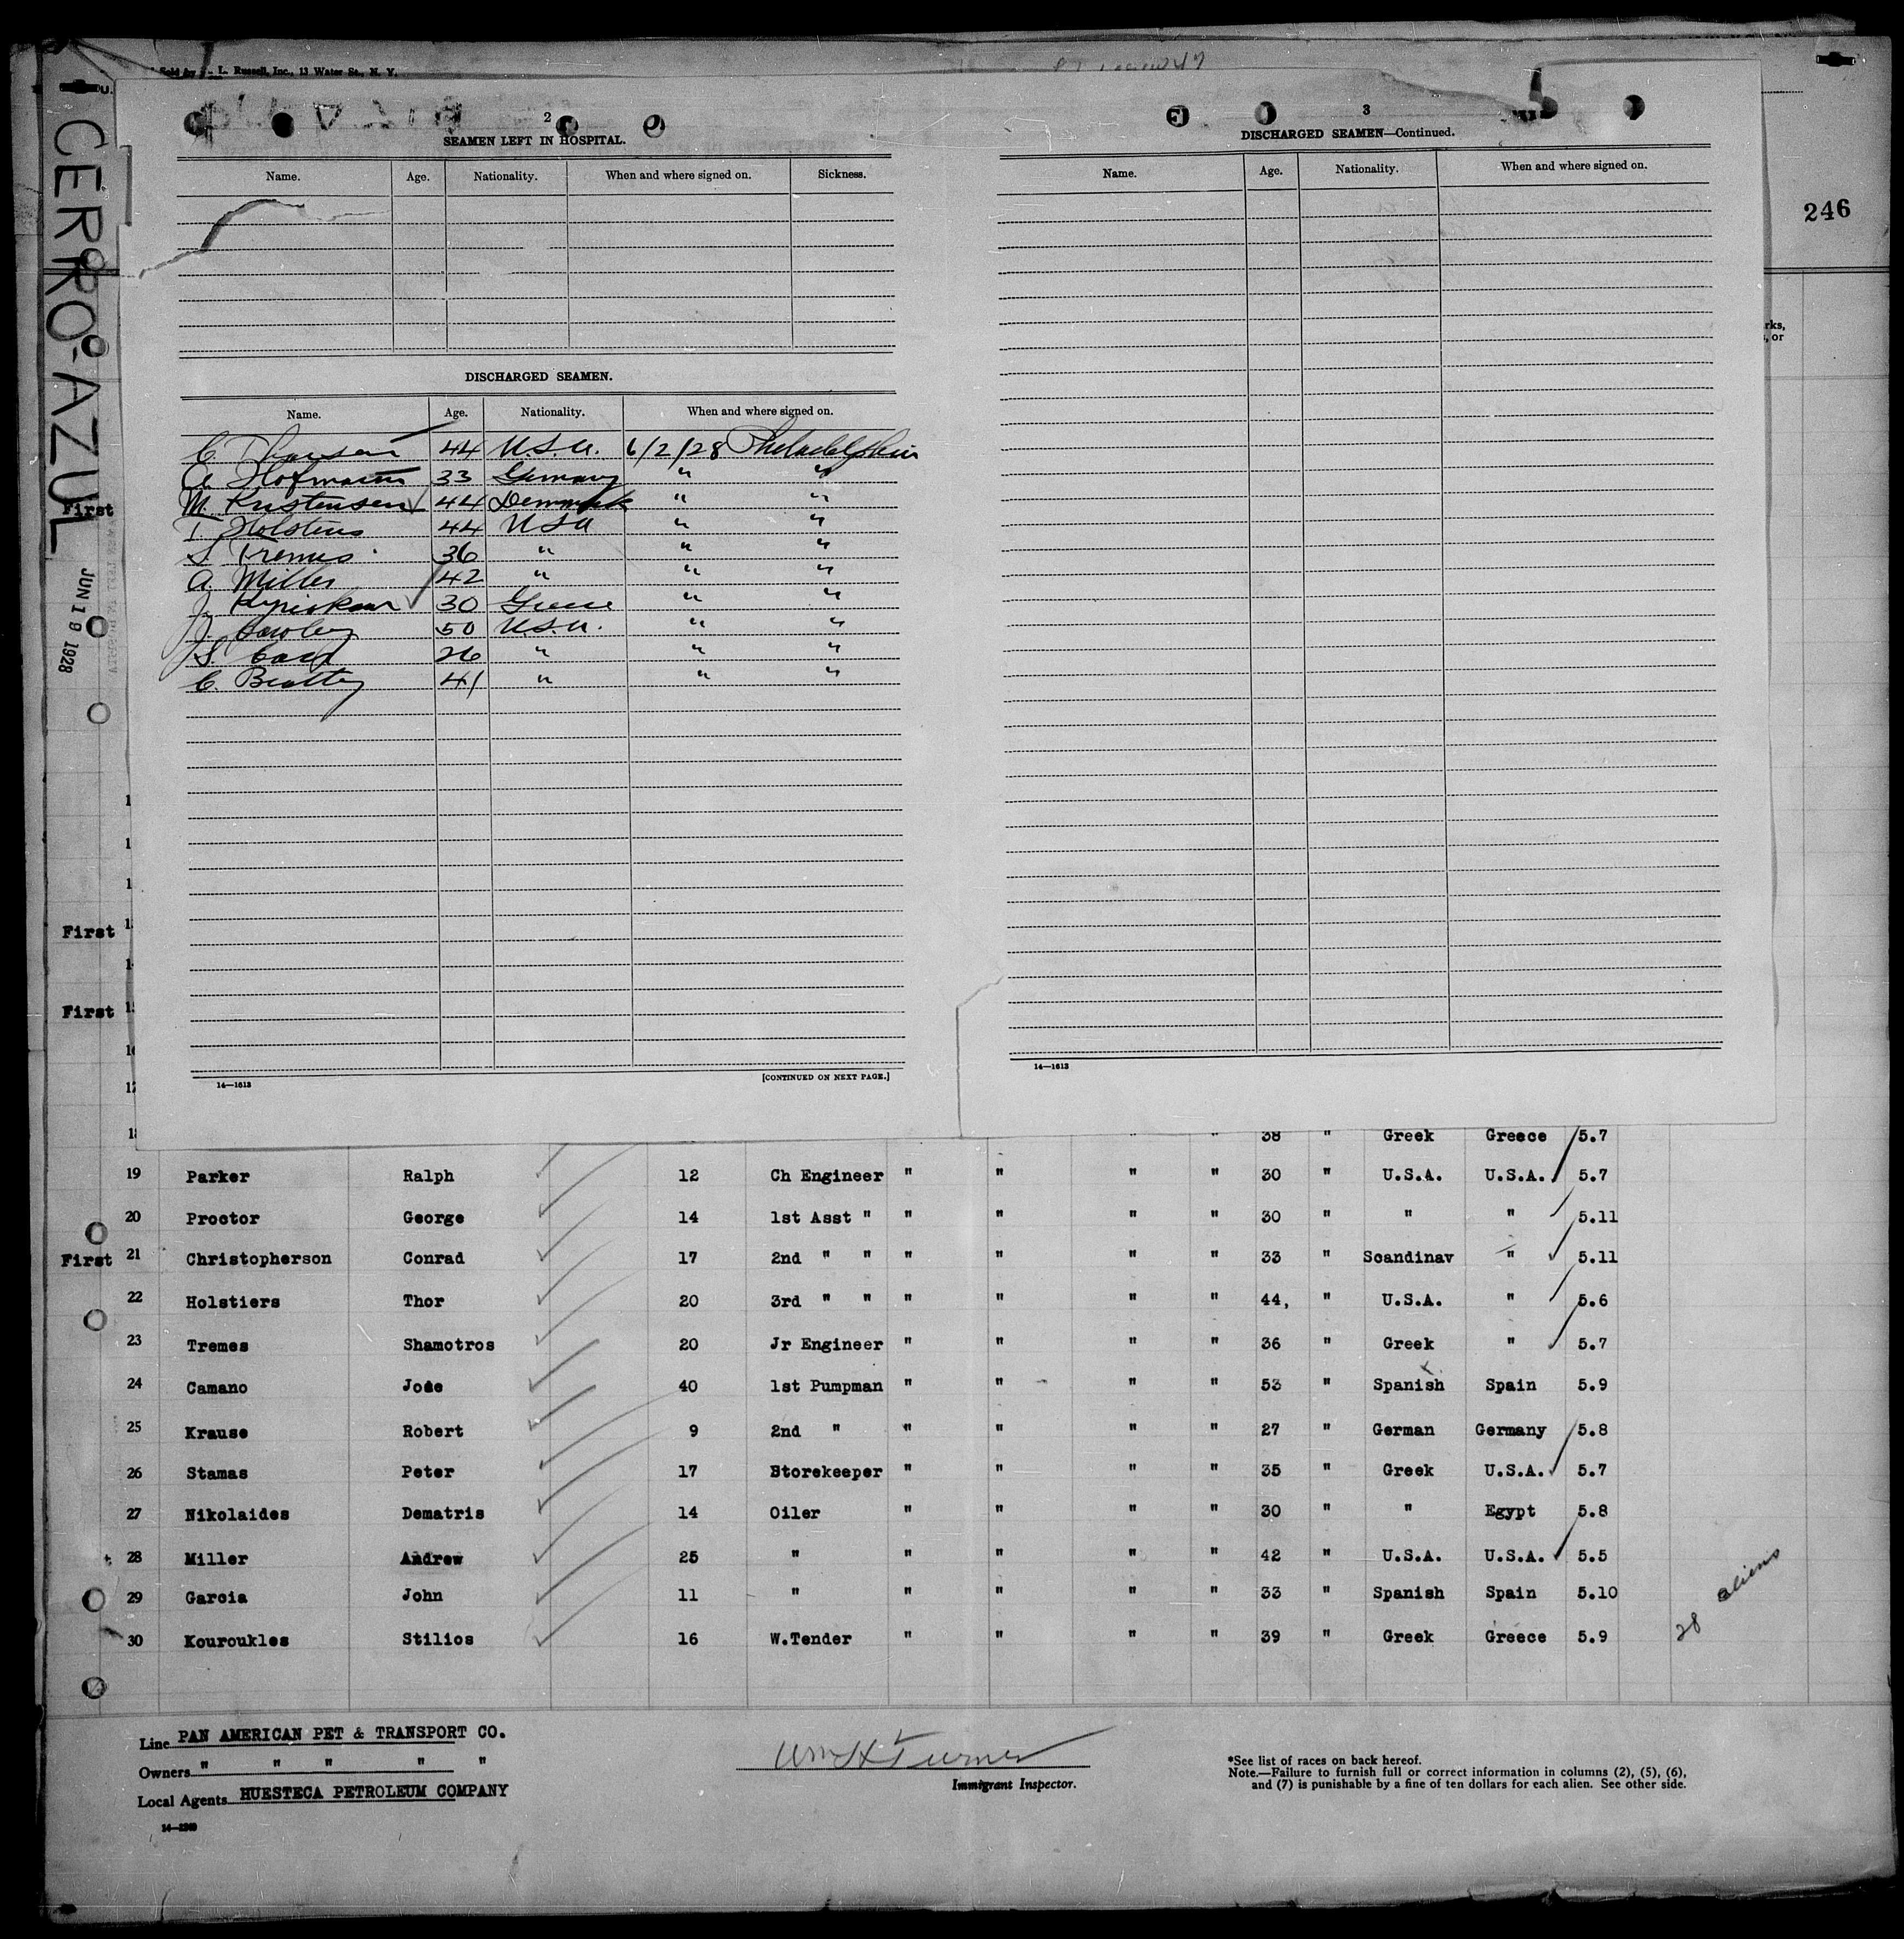 Sold by L. Russell, Inc., 13 Water St., N. Y.
CERRO-AZUL
JUN 19 1928
246
2
SEAMEN LEFT IN HOSPITAL.
Name. Age. Nationality. When and where signed on. Sickness.
DISCHARGED SEAMEN.
Name. Age. Nationality. When and where signed on.
C. 44 U.S.A. 6/2/28 Philadelphia
Hofmann 33 Germany " "
M. Kristensen 44 Denmark " "
T. Holstiers 44 USA " "
S. Tremes 36 " " "
A. Miller 42 " " "
J. 30 Greece " "
J. 50 U.S.A. " "
S. 26 " " "
C. Beatty 41 " " "
14—1613
[CONTINUED ON NEXT PAGE.]
3
DISCHARGED SEAMEN—Continued.
Name. Age. Nationality. When and where signed on.
14—1613
rks,
, or
First
First
First
38 " Greek Greece 5.7
19 Parker Ralph 12 Ch Engineer " " " " 30 " U.S.A. U.S.A. 5.7
20 Proctor George 14 1st Asst " " " " " 30 " " " 5.11
First 21 Christopherson Conrad 17 2nd " " " " " " 33 " Scandinav " 5.11
22 Holstiers Thor 20 3rd " " " " " " 44, " U.S.A. " 5.6
23 Tremes Shamotros 20 Jr Engineer " " " " 36 " Greek " 5.7
24 Camano Jose 40 1st Pumpman " " " " 53 " Spanish Spain 5.9
25 Krause Robert 9 2nd " " " " " 27 " German Germany 5.8
26 Stamas Peter 17 Storekeeper " " " " 35 " Greek U.S.A. 5.7
27 Nikolaides Dematris 14 Oiler " " " " 30 " " Egypt 5.8
28 Miller Andrew 25 " " " " " 42 " U.S.A. U.S.A. 5.5
29 Garcia John 11 " " " " " 33 " Spanish Spain 5.10
30 Kouroukles Stilios 16 W.Tender " " " " 39 " Greek Greece 5.9
28 aliens
Line PAN AMERICAN PET & TRANSPORT CO.
Owners " " " " "
Local Agents HUESTECA PETROLEUM COMPANY
Wm H Turner
Immigrant Inspector.
*See list of races on back hereof.
Note.—Failure to furnish full or correct information in columns (2), (5), (6),
and (7) is punishable by a fine of ten dollars for each alien. See other side.